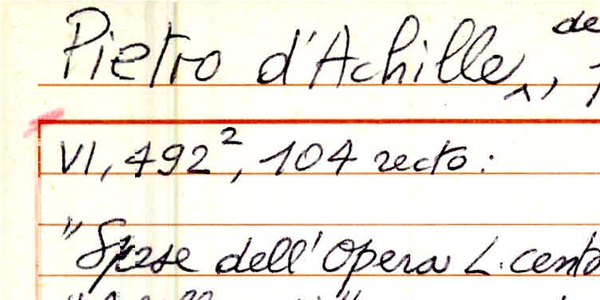 Pietro d'Achille, de
VI, 492², 104 recto:
"Spese dell'Opera L. cento